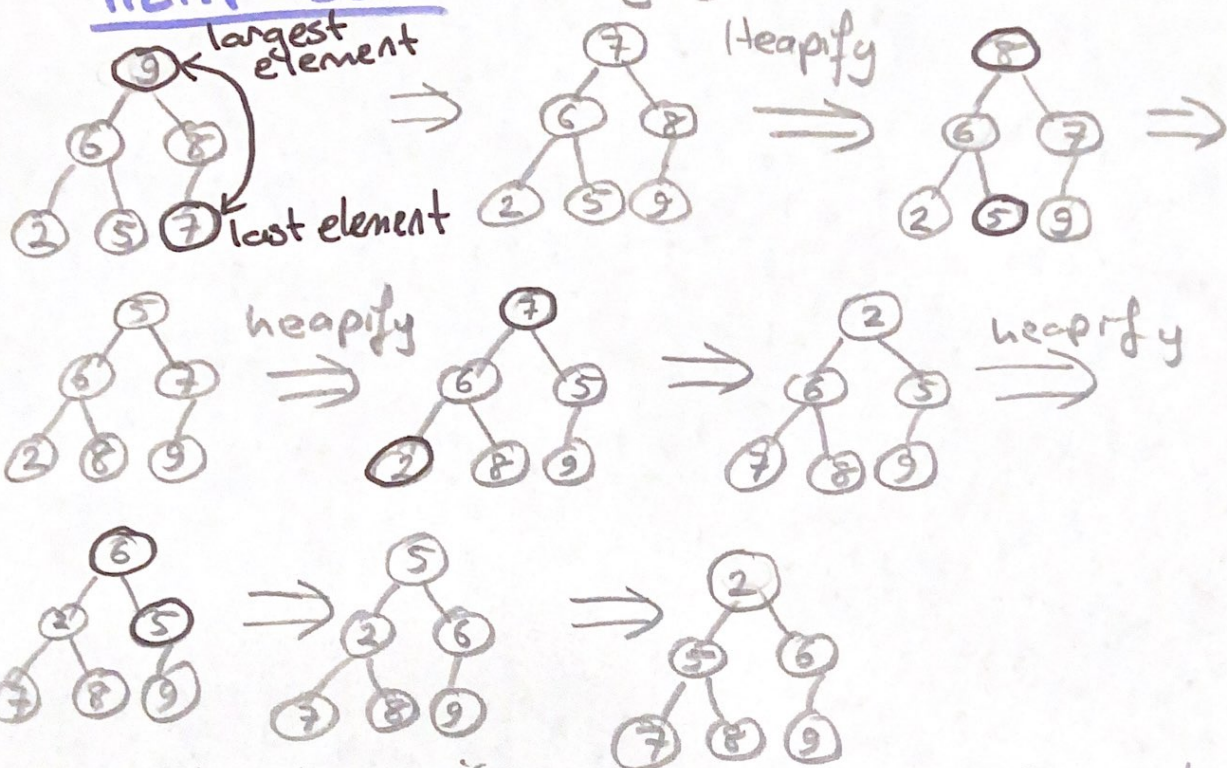 largest
element
9
6 8
2 5 7
last element
7
6 8
2 5 9
Heapify
8
6 7
2 5 9
5
6 7
2 8 9
heapify
7
6 5
2 8 9
2
6 5
7 8 9
heapify
6
2 5
7 8 9
5
2 6
7 8 9
2
5 6
7 8 9